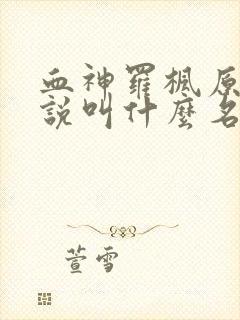 血神羅楓原
說叫什麼名
萱雪